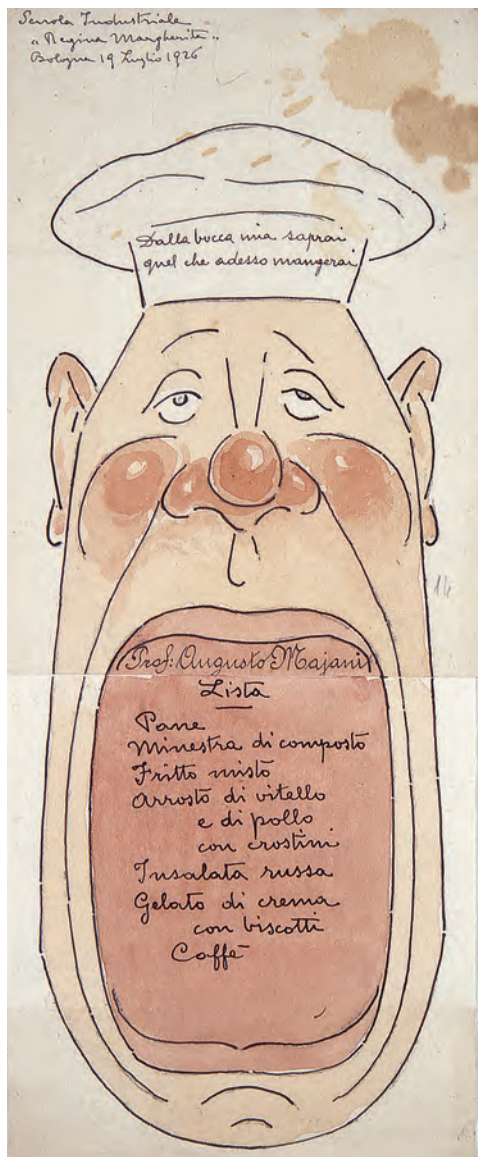 Scuola Industriale
"Regina Margherita"
Bologna 19 Luglio 1926
Dalla bocca mia saprai
quel che adesso mangerai
14
Prof: Augusto Majani
Lista
Pane
Minestra di composto
Fritto misto
Arrosto di vitello
e di pollo
con crostini
Insalata russa
Gelato di crema
con biscotti
Caffè